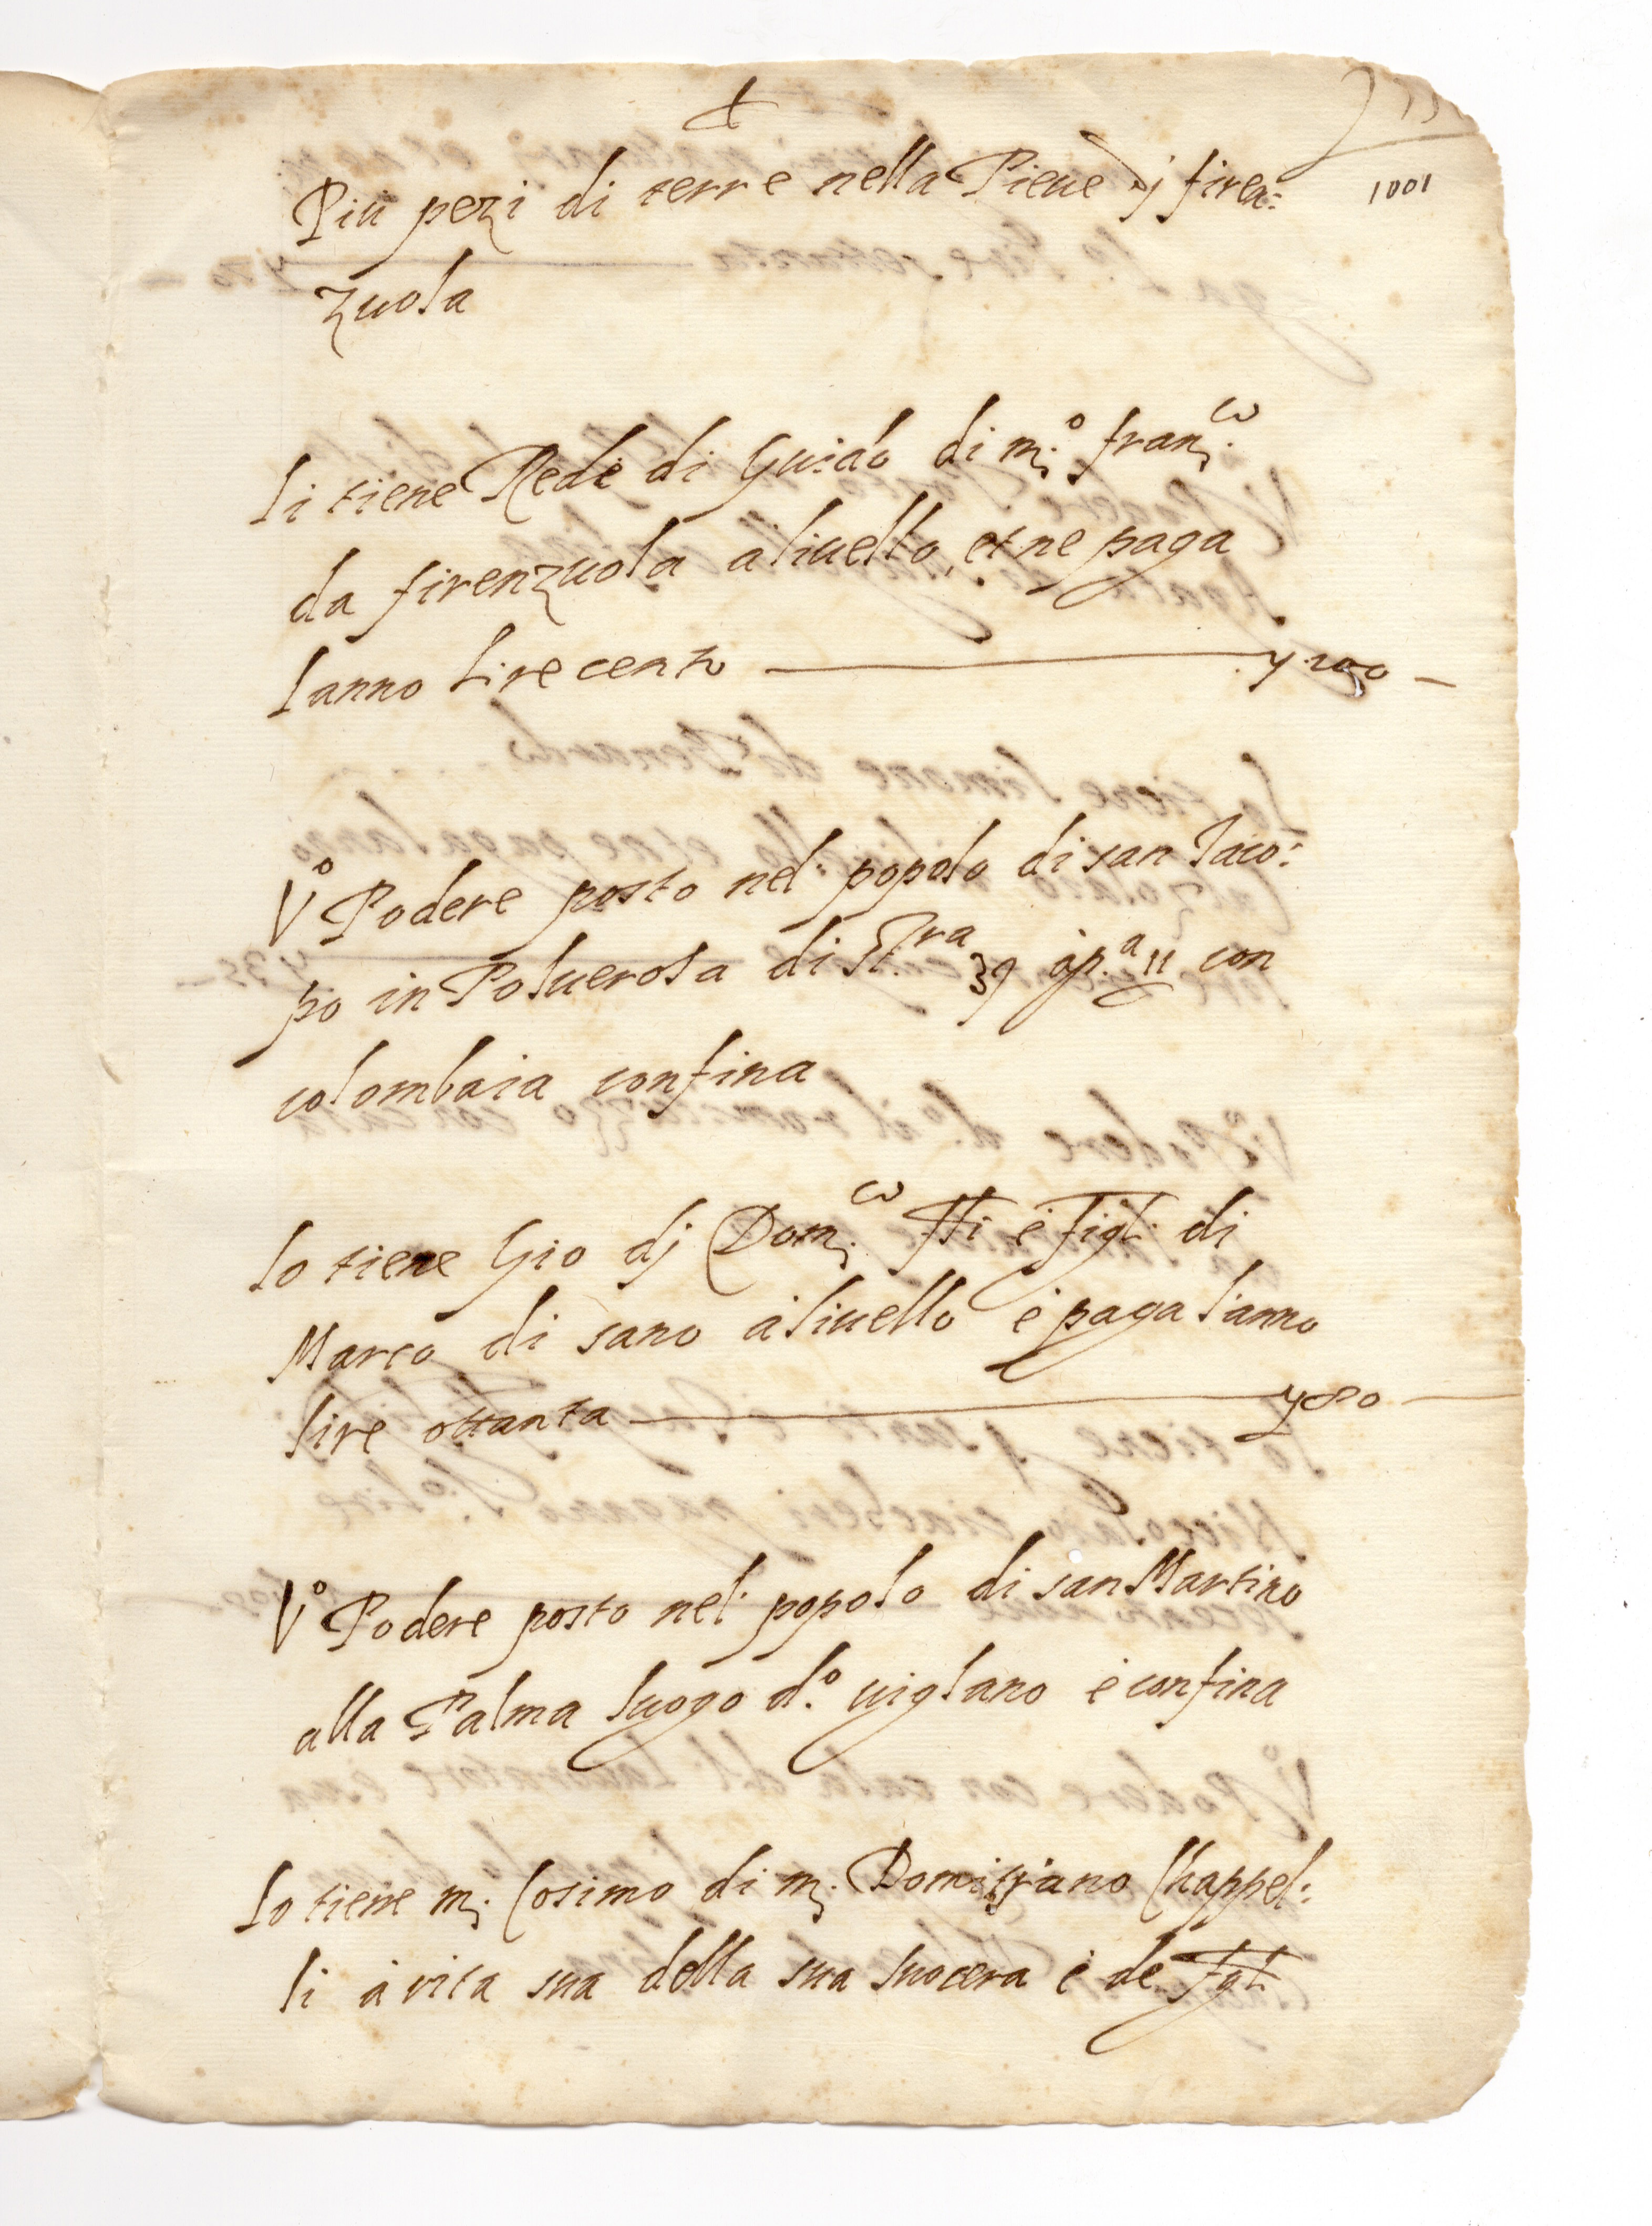 Più pezi di terre nella Pieue dj firen:
zuola
1001
li tiene Rede di Guido di m.º fran.co
da firenzuola a liuello, et ne paga
lanno Lire cento — 100 —
Vº Podere posto nel popolo di san Iaco:
po in Poluerosa di st.ra 39 ap.a 11 con
colombaia confina
lo tiene Gio dj Dom.co ffri è figli di
Marco di sano à liuello è paga lanno
lire ottanta — 80 —
Vº Podere posto nel popolo di san Martino
alla Palma luogo d.º uigliano è confina
lo tiene m. Cosimo di m. Domitiano Chappel:
li à vita sua della sua suocera è de figli